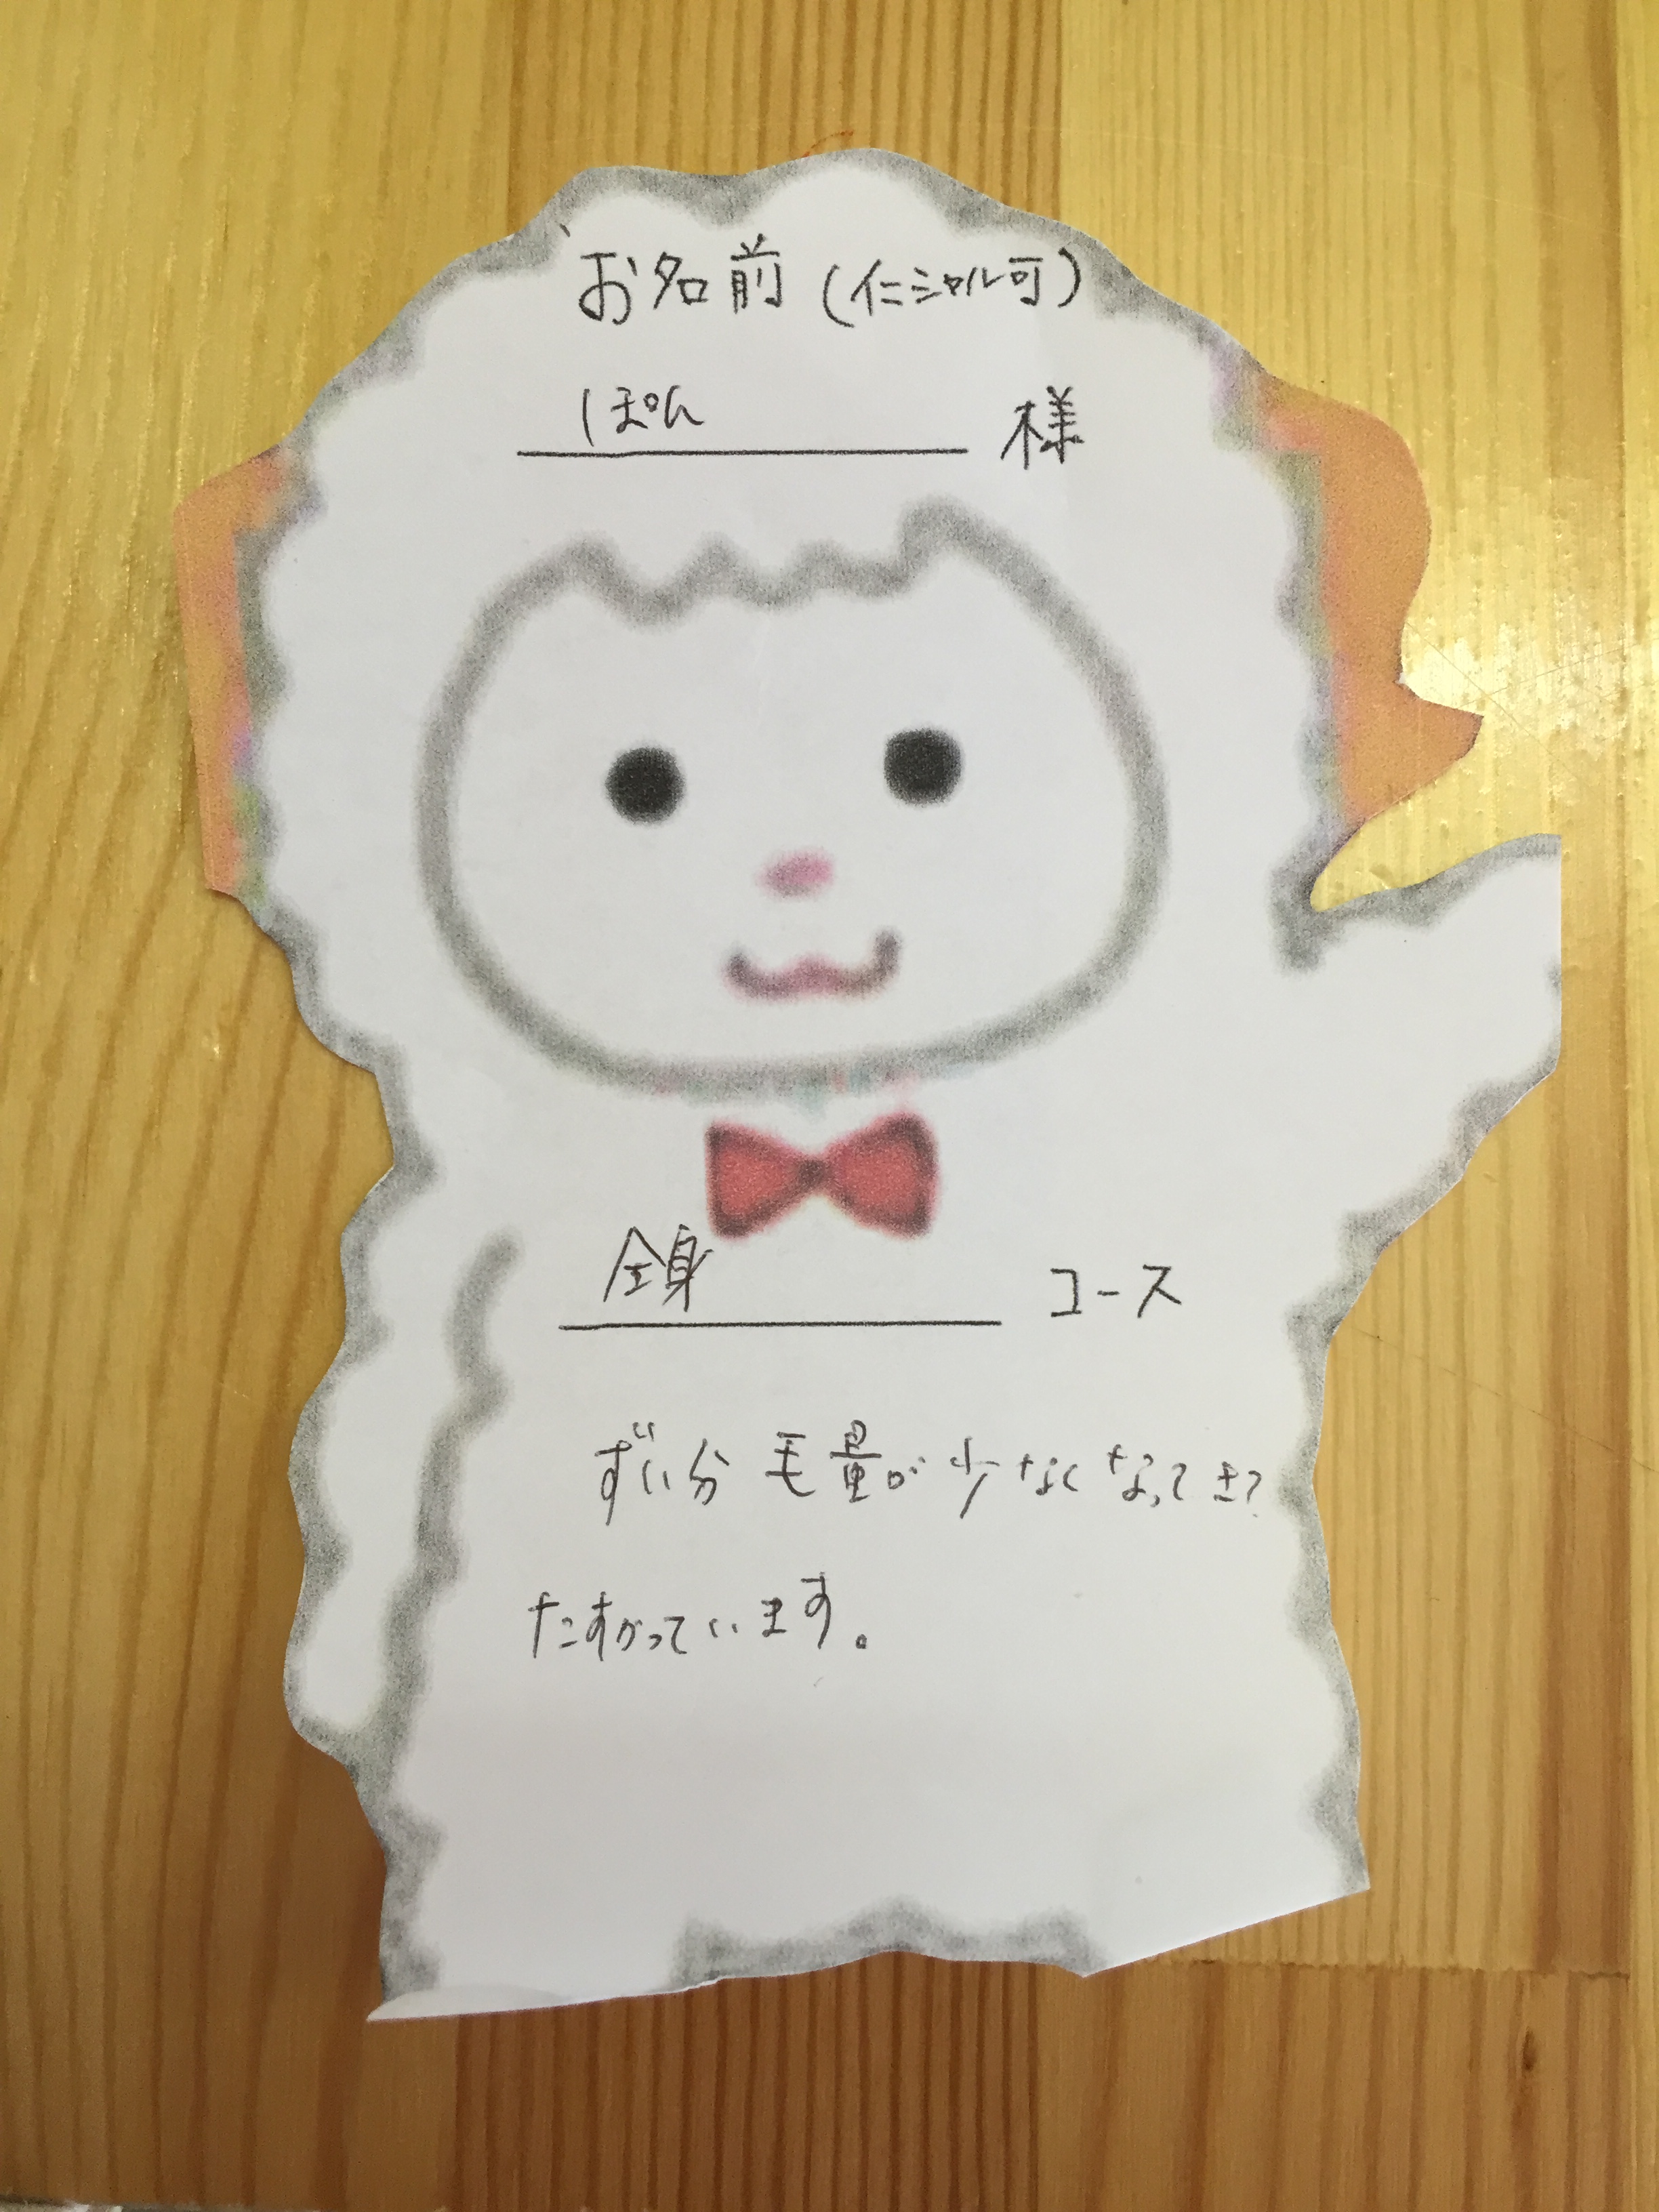 お名前(イニシャル可)
しぽん 様
全身 コース
ずい分毛量が少なくなってきて
たすかっています。